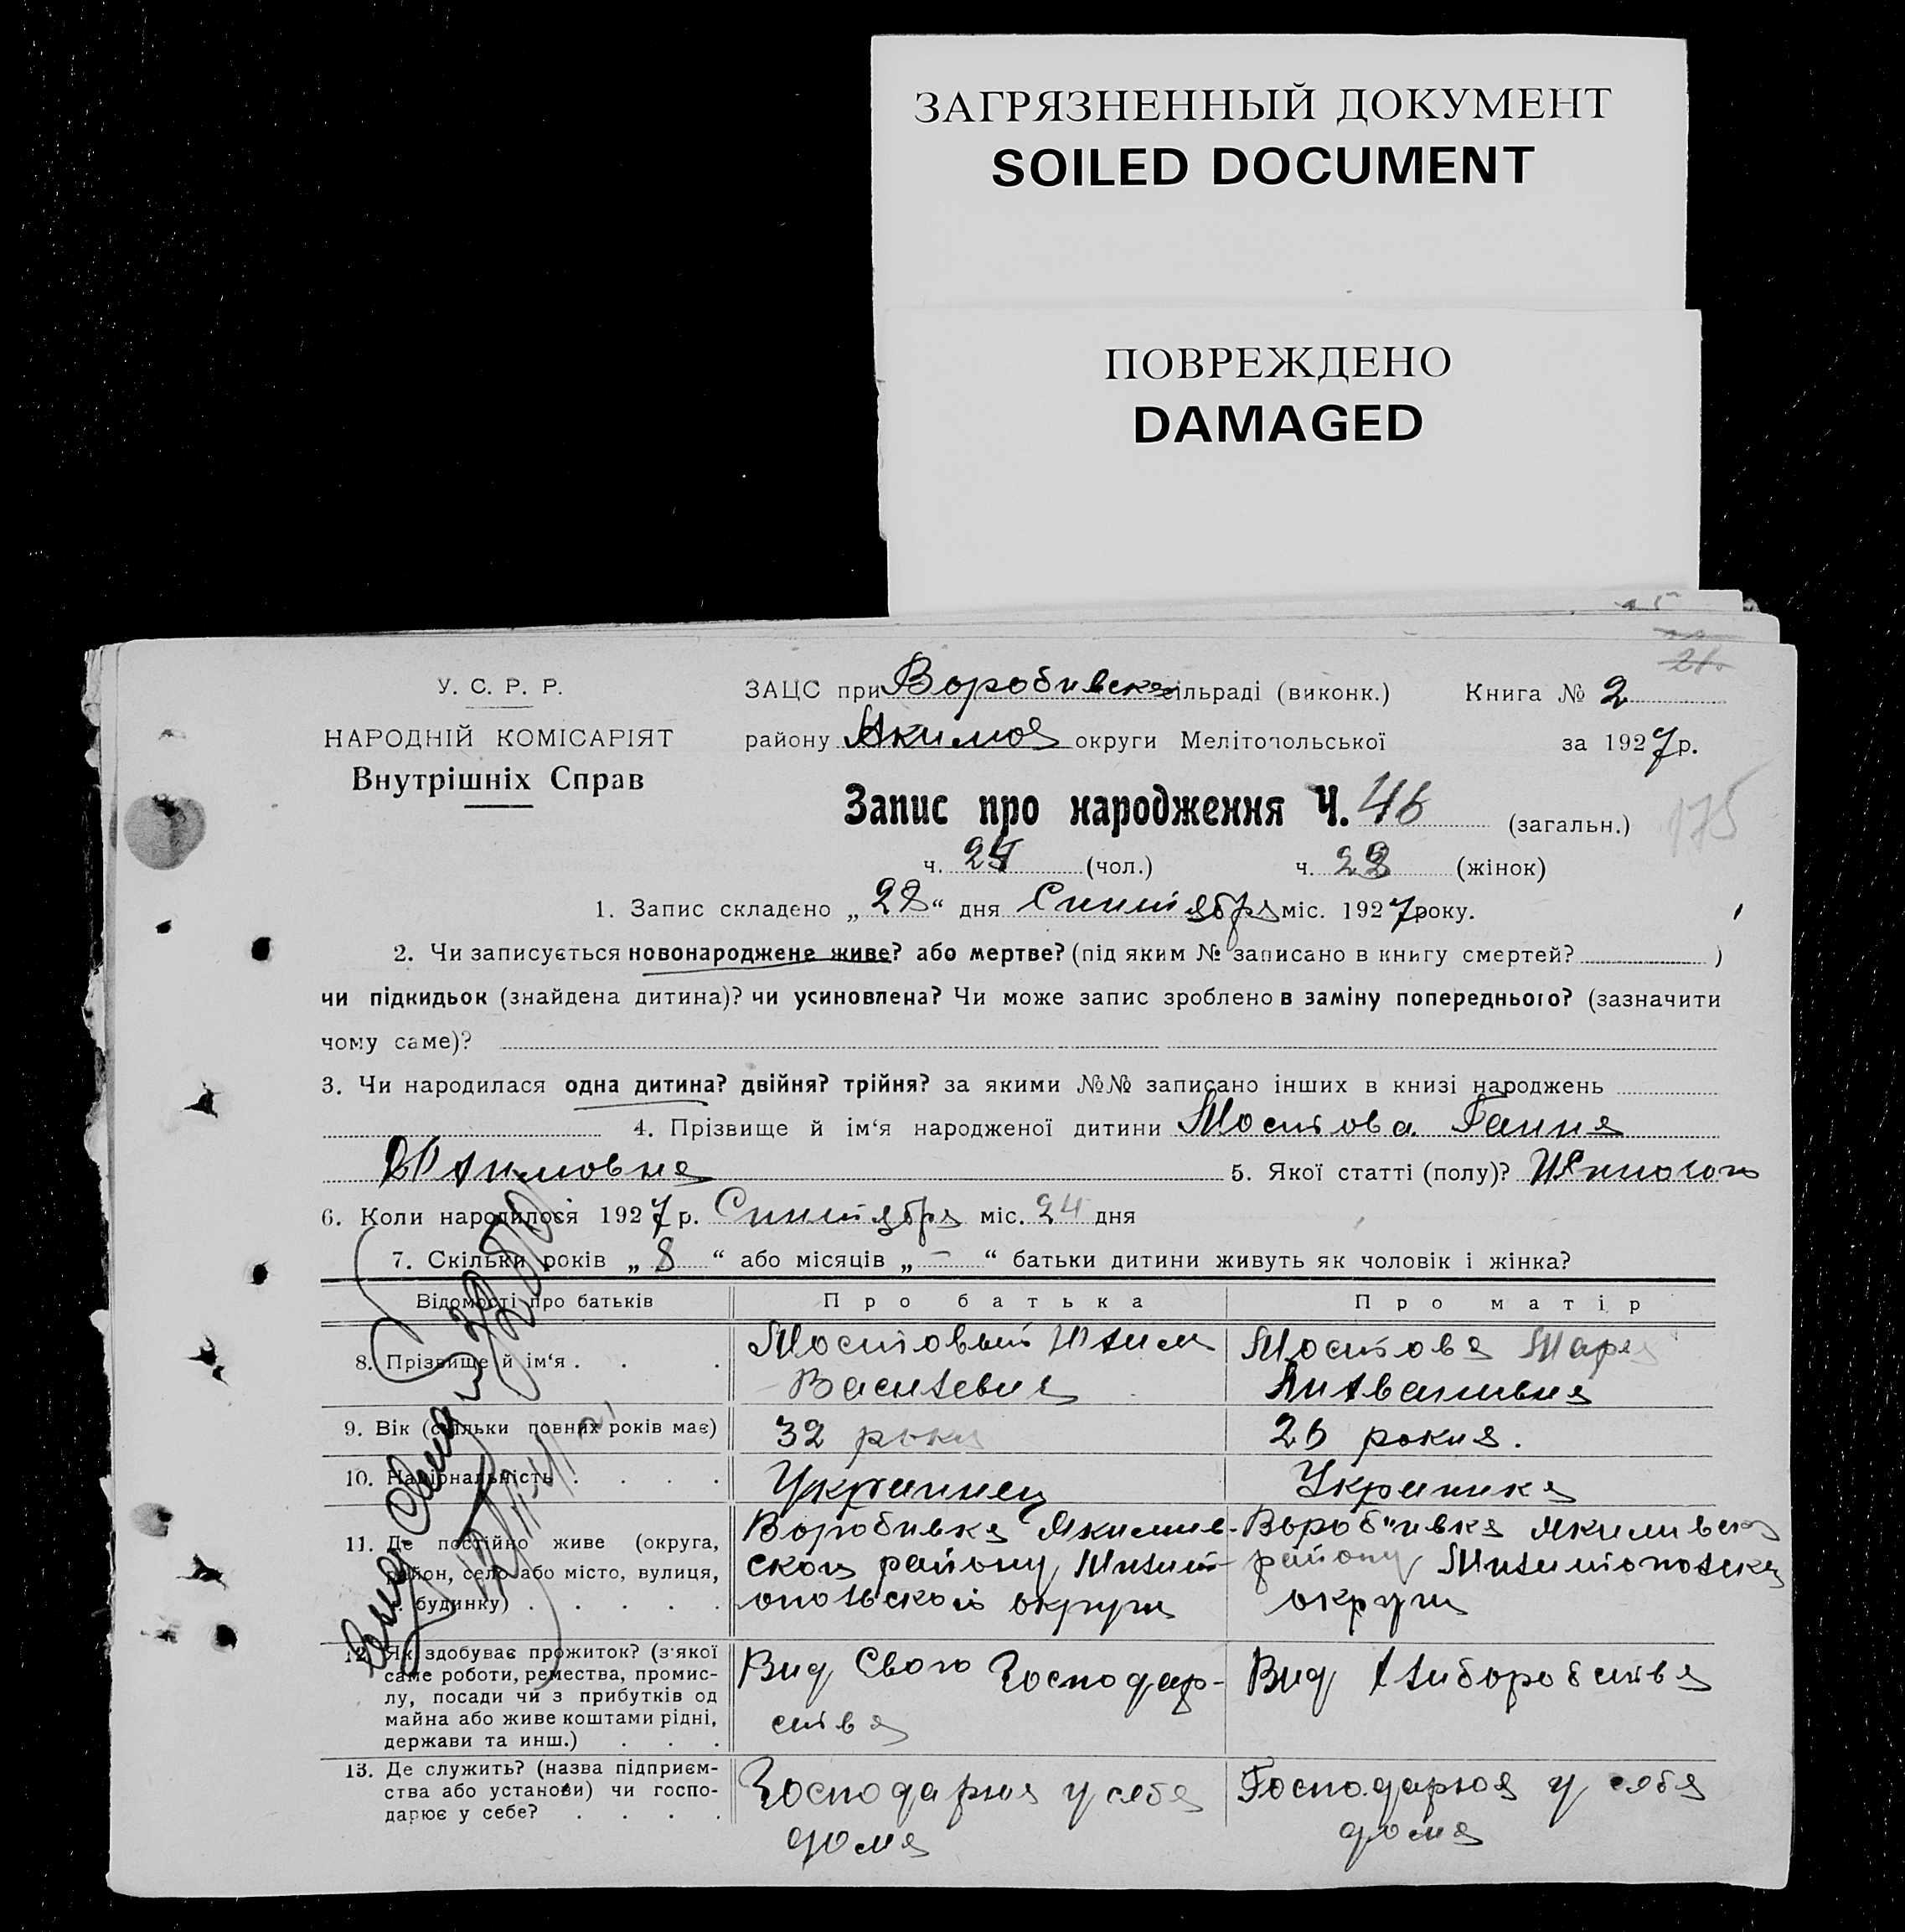 ЗАГРЯЗНЕННЫЙ ДОКУМЕНТ
SOILED DOCUMENT
ПОВРЕЖДЕНО
DAMAGED
У. С. Р. Р.
НАРОДНІЙ КОМІСАРІЯТ
Внутрішніх Справ
ЗАЦС при Воробивска сільраді (виконк.) Книга № 2
району Акимов округи Мелітопольської за 1927 р.
Запис про народження Ч. 46 (загальн.) 175
ч. 24 (чол.) ч. 22 (жінок)
1. Запис складено „28“ дня Синтября міс. 1927 року.
2. Чи записується новонароджене живе? або мертве? (під яким № записано в книгу смертей? )
чи підкидьок (знайдена дитина)? чи усиновлена? Чи може запис зроблено в заміну попереднього? (зазначити
чому саме)?
3. Чи народилася одна дитина? двійня? трійня? за якими №№ записано інших в книзі народжень
4. Прізвище й ім‘я народженої дитини Мостова Ганна
5. Якої статті (полу)?
6. Коли народилося 1927 р. Синтября міс. 24 дня
7. Скільки років „8“ або місяців „–“ батьки дитини живуть як чоловік і жінка?
Відомості про батьків Про батька Про матір
8. Прізвище й ім‘я . . . Мостовый Мостова Мария
9. Вік (скільки повних років має) 32 роки 26 рокив.
10. Національність . . . . Украинец Украинка
11. Де постійно живе (округа, Воробивка Якимив- Воробивка Якимивской
район, село або місто, вулиця, ской району Милит- району Милитопольской
№ будинку) . . . . . опольской округи округи
12. Як здобуває прожиток? (з‘якої Вид Свого Господар- Вид
саме роботи, ремества, промис-
лу, посади чи з прибутків од ства
майна або живе коштами рідні,
держави та инш.) . . .
13. Де служить? (назва підприєм- Господарюя у себя Господарюя у себя
ства або установи) чи госпо- дома дома
дарює у себе? . . . .